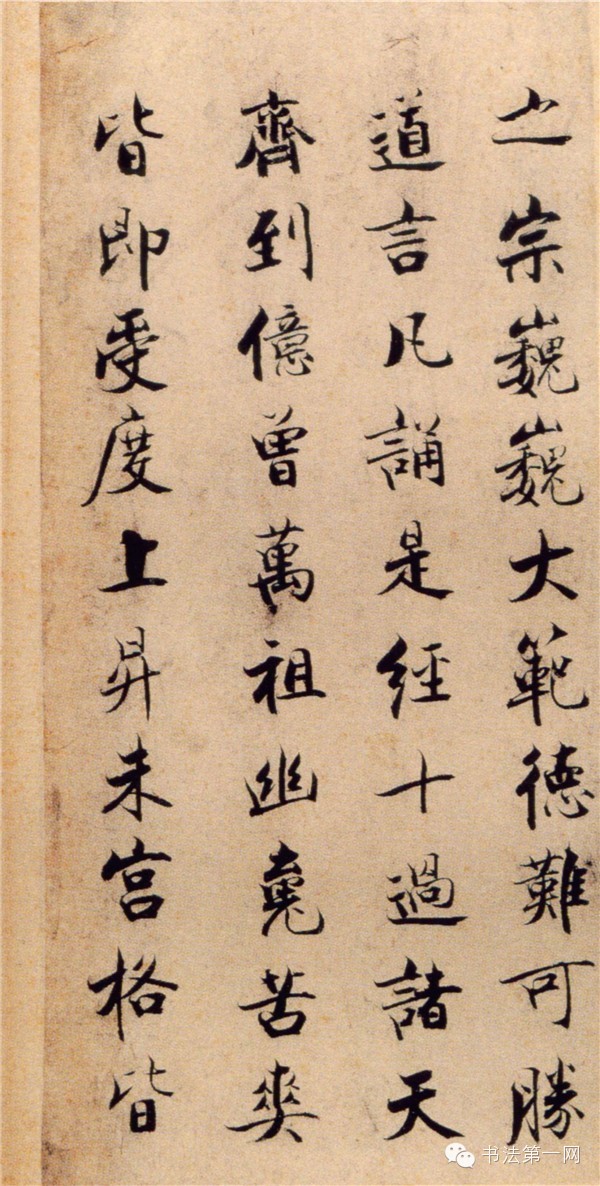 之宗巍巍大範德難可勝
道言凡誦是經十過諸天
齊到億曾萬祖幽魂苦爽
皆即受度上昇朱宮格皆
书法第一网